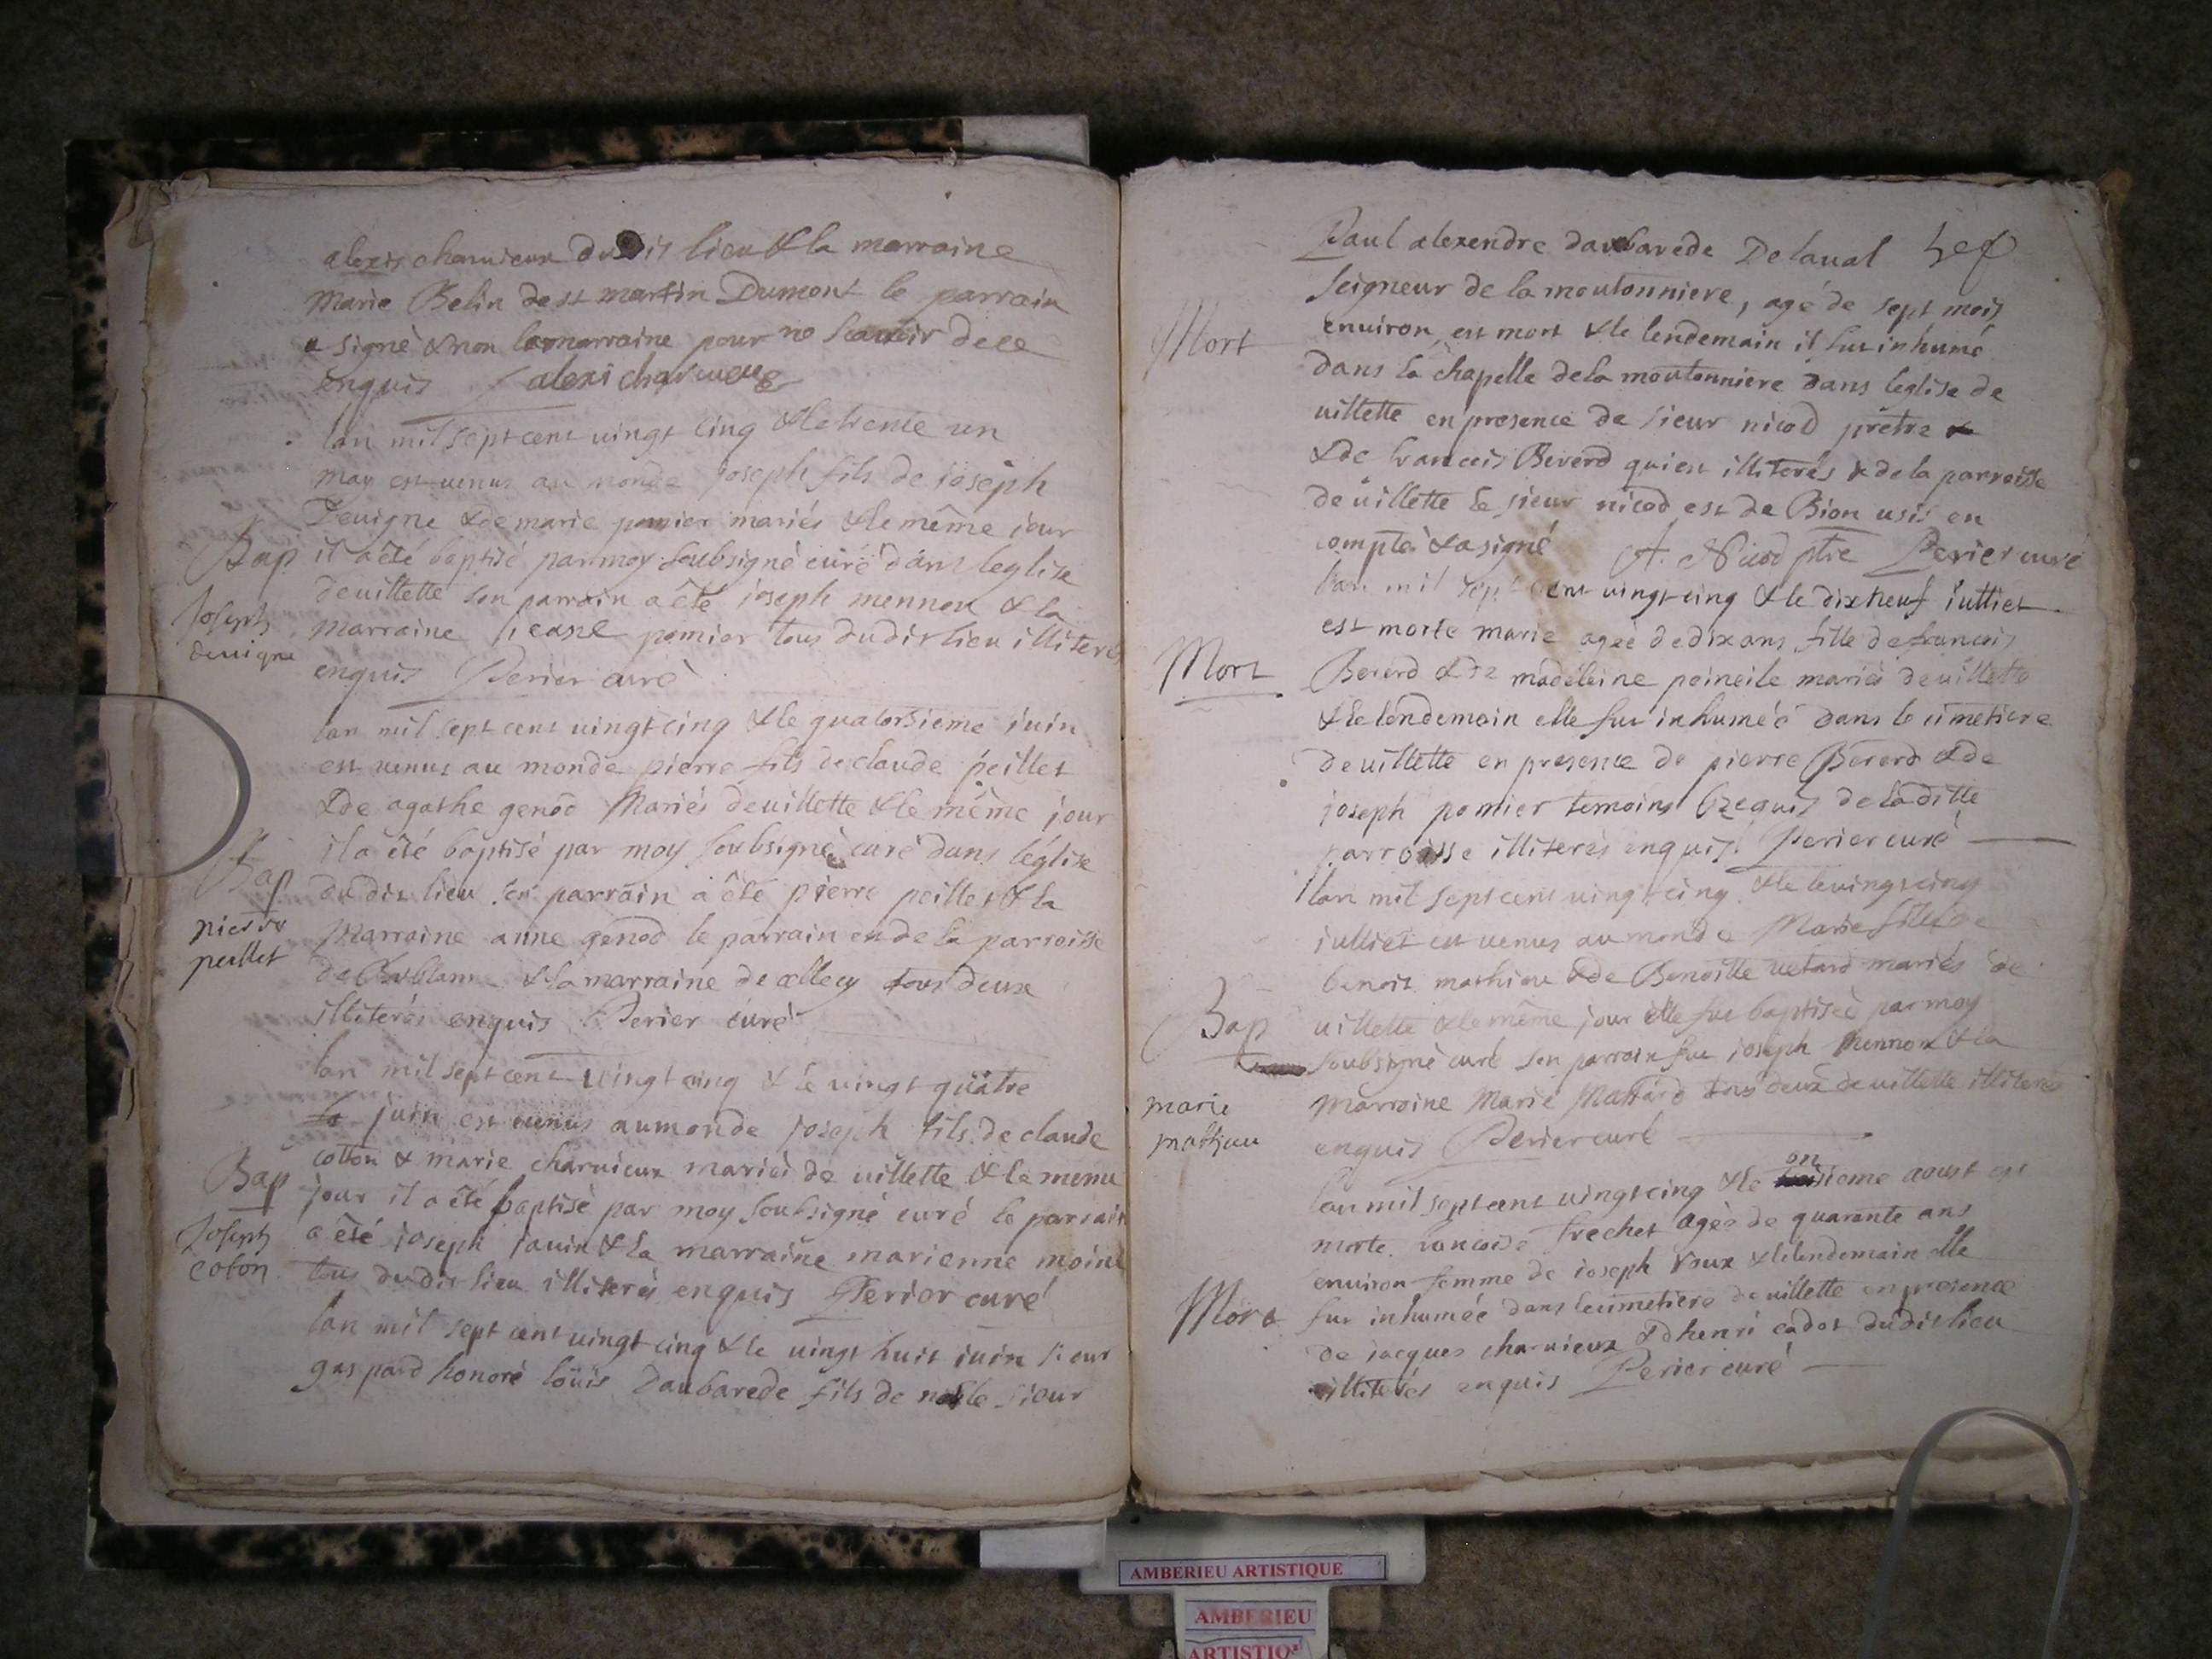 alexis charuieux dudit lieu & la marraine
Marie Belin de st martin Dumont le parrain
a signé & non la marraine pour ne scauoir de ce
enquis alexi charuieux
lan mil sept cent uingt cinq & le trente un
may est uenus au monde joseph fils de joseph
Deuigne & de marie pomier mariés & le même jour
Bap il a êté baptisé par moy soubsigné curé dans leglise
de uillette son parrain a êté joseph mennon & la
Joseph deuigne marraine pomier tous dudit lieu illiterés
enquis Perier curé
lan mil sept cent uingt cinq & le quatorsieme iuin
est uenus au monde pierre fils de claude peillet
& de agathe genod Mariés de uillette & le même jour
il a êté baptisé par moy soubsigné curé dans léglise
Bap dudit lieu son parrain a êté pierre peillet & la
pierre peillet marraine anne genod le parrain est de la parroisse
de & la marraine de tous deux
illiterés enquis Perier curé
lan mil sept cent uingt cinq & le uingt quatre
juin est uenus au monde joseph fils de claude
Bap cotton & marie charuieux mariés de uillette & le meme
jour il a êté baptisé par moy soubsigné curé le parrain
Joseph coton a êté joseph jauin & la marraine marienne moine
tous dudit lieu illiterés enquis Perier curé
lan mil sept cent uingt cinq & le uingt huit iuin sieur
gaspard honoré loüis Daubarede fils de noble sieur
Paul alexendre daubarede Delaual
seigneur de la moutonniere, agé de sept mois
Mort enuiron est mort & le lendemain il fut inhumé
dans la chapelle de la moutonniere dans leglise de
uillette en presence de sieur nicod prêtre
& de francois Bererd qui est illiterés & de la parroisse
de uillette le sieur nicod est de Bion
& a signé A. Nicod ptre Perier curé
lan mil sept cent uingt cinq & le dix neuf iulliet
est morte marie agée de dix ans fille de francois
Mort Bererd & de madéleine mariés de uillette
& le lendemain elle fut inhumée dans le cimetiere
de uillette en presence de pierre Bererd & de
joseph pomier temoins de la ditte
parroisse illiterés enquis Perier curé
lan mil sept cent uingt cinq & le uingt cinq
iulliet est uenus au monde Marie fille de
benoit mathieu & de Benoitte mariés de
Bap uillette & le même jour elle fut baptisée par moy
soubsigné curé son parrain fut joseph mennon & la
marie mathieu marraine Marie Mattard tous deux de uillette illiterés
enquis Perier curé
lan mil sept cent uingt cinq & le onsieme aoust est
morte francoise frechet agée de quarante ans
enuiron femme de joseph roux & le lendemain elle
Mort fut inhumée dans le cimetiere de uillette en presence
de jacques charuieux & dhenri cadot dudit lieu
illiterés enquis Perier curé
AMBERIEU ARTISTIQUE
AMBERIEU
ARTISTIQUE